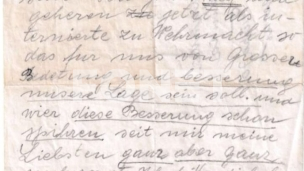 geheren jetzt als in-
ternierte zu Wehrmacht so
das für uns von Grosser
Bedetung und besserung
unsere Lage sein soll. und
wier diese Besserung schon
spihren seit mir meine
Liebsten ganz aber ganz